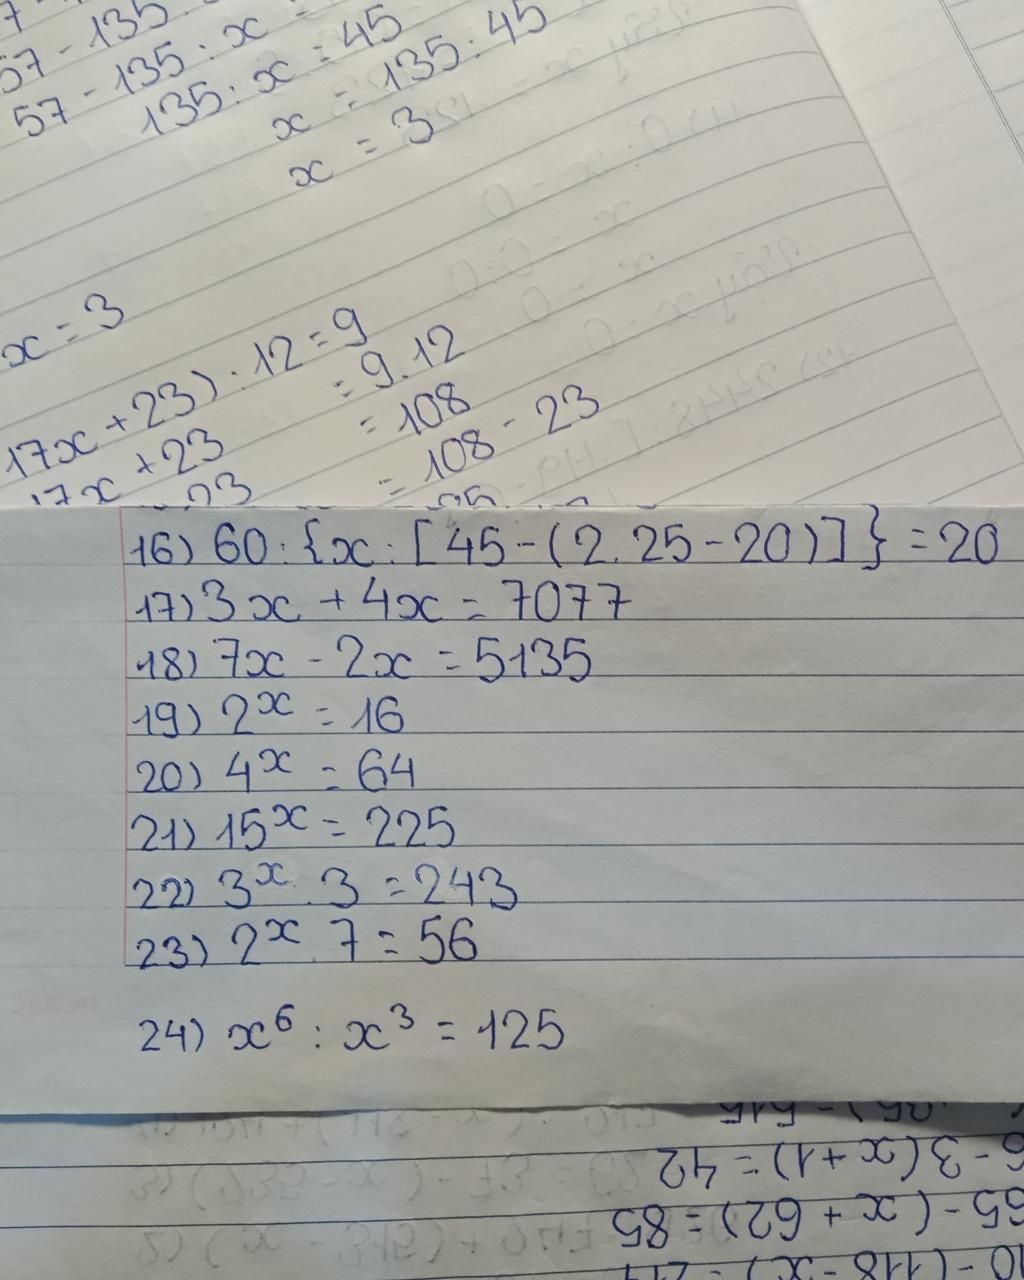 57 - 135
57 - 135 : x =
135 : x = 45
x = 135 : 45
x = 3
x = 3
17x + 23) : 12 = 9
17x + 23 = 9.12
= 108
23 = 108 - 23
16) 60 : {x : [45 - (2.25 - 20)]} = 20
17) 3x + 4x = 7077
18) 7x - 2x = 5135
19) 2ˣ = 16
20) 4ˣ = 64
21) 15ˣ = 225
22) 3ˣ . 3 = 243
23) 2ˣ . 7 = 56
24) x⁶ : x³ = 125
- 3(x + 1) = 42
65 - (x + 62) = 85
10 - (118 - x) =